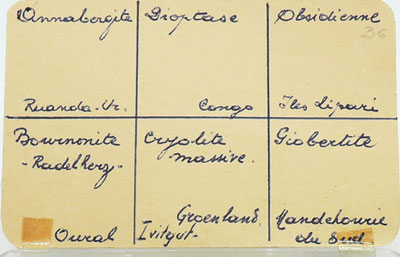 Annabergite
Ruanda-Ur.
Dioptase
Congo
Obsidienne
B6
Îles Lipari
Bournonite
-Radelherz-
Oural
Cryolite
massive.
Groenland.
Ivitgut
Giobertite
Mandchourie
du Sud